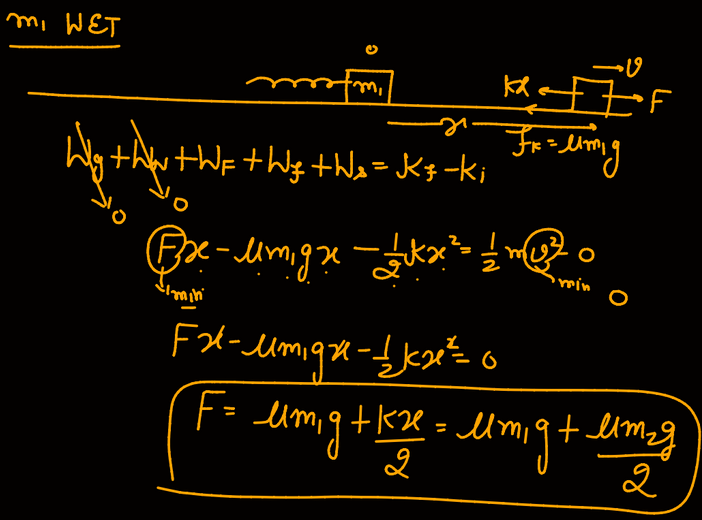 m₁ WET
0
m₁
kx
v
F
x
fₖ = μm₁g
Wg + WN + WF + Wf + Ws = Kf - Ki
0
0
Fx - μm₁gx - 1/2 kx² = 1/2 mv² - 0
min
min
0
Fx - μm₁gx - 1/2 kx² = 0
F = μm₁g + kx/2 = μm₁g + μm₂g/2